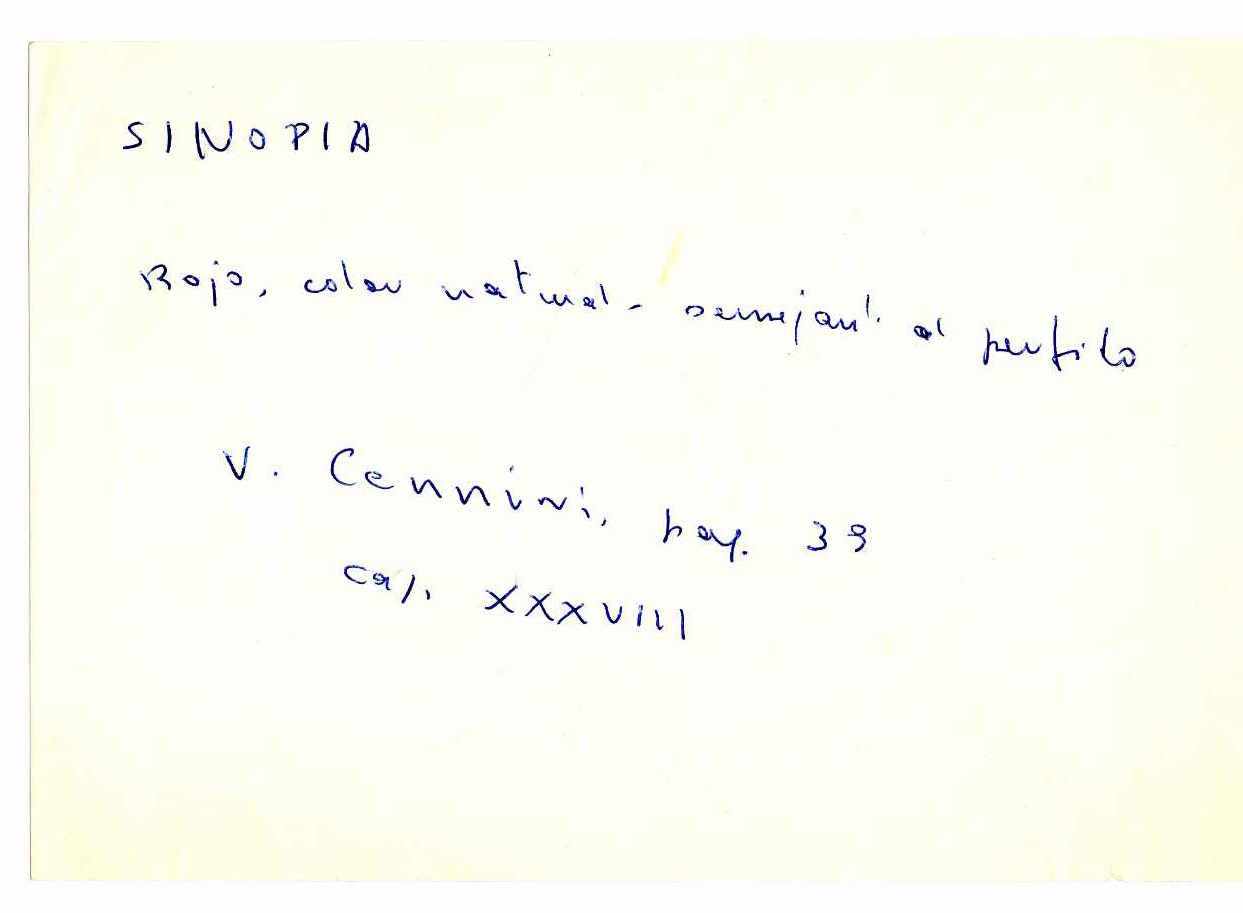 SINOPIA
Rojo, color natural - semejant. al perfilo
V. Cennini, pag. 39
cap. XXXVIII